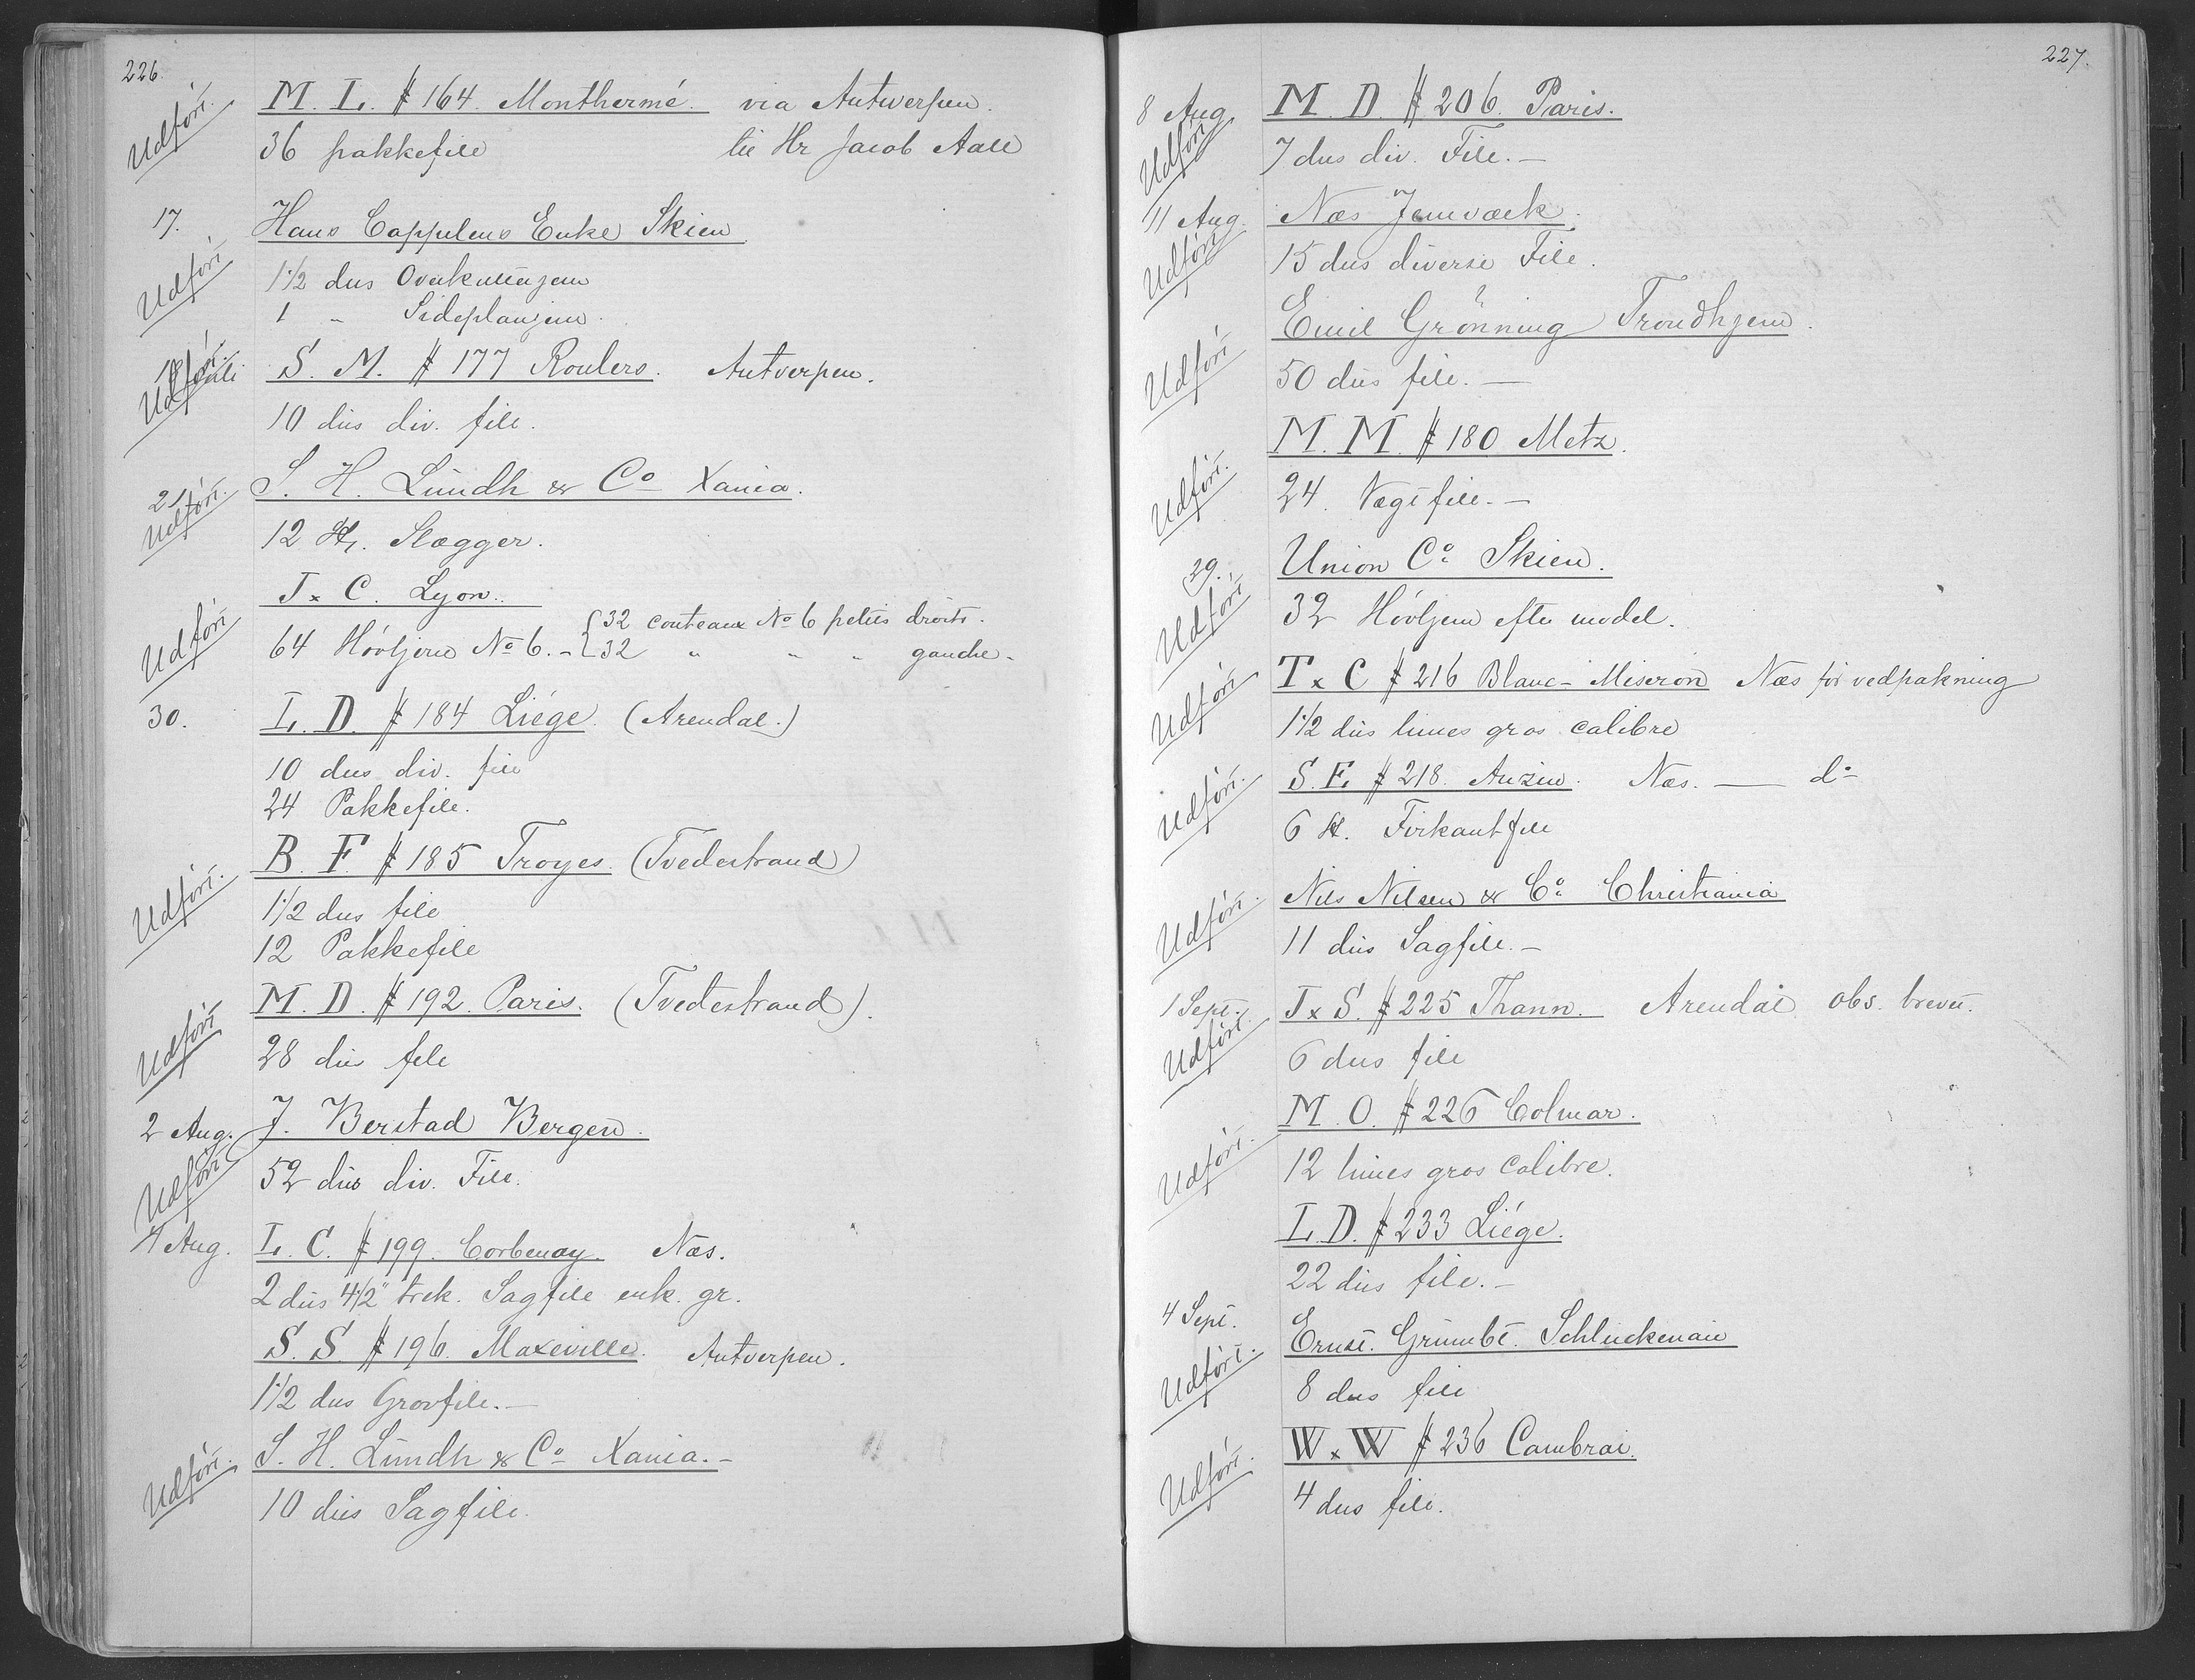 226.
Udfört. M. L. # 164. Monthermé. via Antwerpen.
36 pakkefile til Hr Jacob Aall
17. Hans Cappelens Enke Skien.
Udfört 1 1/2 dus Overkutterjern
1 " Sideplanjern.
18 Juli S. M. # 177 Roulers. Antverpen.
Udfört.
10 dus div. file.
21. S. H. Lundh & Co Xania.
Udfört.
12 St. Slægger.
J x C. Lyon.
Udfört 64 Hövljern No 6. - { 32 couteaux No 6 petits droits.
32 " " " gauche.
30. L. D. # 184 Liége. (Arendal.)
10 dus div. file
24 Pakkefile.
B. F. # 185 Troyes. (Tvedestrand)
Udfört. 1 1/2 dus file
12 Pakkefile
M. D. # 192. Paris. (Tvedestrand).
Udfört 28 dus file
2 Aug. J. Berstad Bergen.
Udfört 52 dus div. File.
4 Aug. L. C. # 199. Corbenay. Næs.
2 dus 4 1/2" trek. Sagfile enk. gr.
S. S. # 196. Maxeville. Antverpen.
1 1/2 dus Grovfile. —
Udfört. S. H. Lundh & Co Xania. -
10 dus Sagfile.
227.
8 Aug. M. D. # 206. Paris.
Udfört 7 dus div. File. —
11 Aug. Næs Jernværk.
Udfört 15 dus diverse File.
Emil Grönning Trondhjem.
Udfört 50 dus file. —
M. M. # 180 Metz.
Udfört. 24. Vægtfile. —
29. Union Co Skien.
Udfört 32 Hövljern efter model.
T x C # 216 Blanc-Miseron Næs for vedpakning
Udfört 1 1/2 dus limes gros calibre
S. E. # 218. Anzin. Næs. — do
Udfört. 6 St. Firkantfile
Nils Nilsen & Co Christiania
Udfört. 11 dus Sagfile. —
1 Sept. J x S. # 225 Thann. Arendal obs. brevet.
Udfört. 6 dus file
M. O. # 226 Colmar.
Udfört. 12 limes gros calibre.
L. D. # 233 Liége.
22 dus file. —
4 Sept. Ernst. Grumbt. Schluckenau
Udfört. 8 dus file
W x W # 236 Cambrai.
Udfört. 4 dus file.